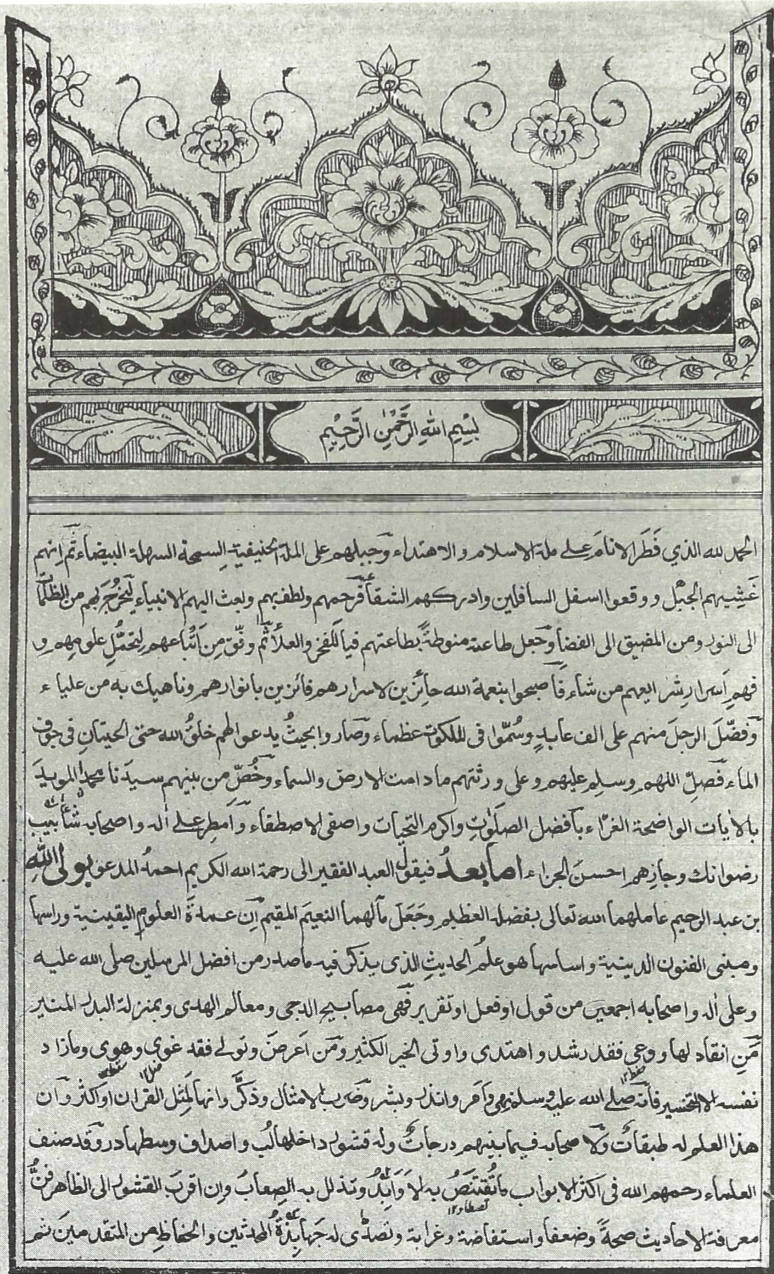 بِسْمِ اللهِ الرَّحْمٰنِ الرَّحِيْمِ
الحمد لله الذي فَطَرَ الانامَ على ملة الاسلام والاهتداء وجبلهم على الملة الحنيفية السمحة السهلة البيضاء ثم انهم
غَشِيهم الجهل ووقعوا اسفل السافلين وادركهم الشقاء فرحمهم ولطف بهم وبعث اليهم الانبياء ليُخرِجَ بهم من الظلمات
الى النور ومن المضيق الى الفضاء وجعل طاعته منوطةً بطاعتهم فيا للفخر والعلاء ثم وفّق من اتْباعهم لتحمُّل علومهم و
فهم اسرار شرايعهم من شاء فاصبحوا بنعمة الله حائزين لاسرارهم فائزين بانوارهم وناهيك به من علياء
وفَضَّلَ الرجلَ منهم على الف عابدٍ وسُمّوا فى الملكوت عظماء وصاروا بحيثُ يدعوا لهم خلقُ الله حتى الحيتان فى جوف
الماء فصلِّ اللهم وسلم عليهم وعلى ورثتهم ما دامت الارض والسماء وخُصَّ من بينهم سيدنا محمدا المويدَ
بالأيات الواضحة الغرّاء بافضل الصلوٰت واكرم التحيات واصفى الاصطفاء وامطر على أله واصحابه شأبيب
رضوانك وجازهم احسن الجزاء اما بعدُ فيقول العبد الفقير الى رحمة الله الكريم احمدُ المدعو بولى الله
بن عبد الرحيم عاملهما الله تعالى بفضله العظيم وجعَلَ مآلهما النعيمَ المقيم ان عمدةَ العلوم اليقينية وراسها
ومبنى الفنون الدينية واساسها هو علمُ الحديث الذى يذكر فيه ما صدر من افضل المرسلين صلى الله عليه
وعلى أله واصحابه اجمعين من قول او فعل او تقرير فهى مصابيح الدجى ومعالم الهدى وبمنزلة البدر المنير
مَن انقاد لها ووعى فقد رشد واهتدى واوتى الخير الكثير ومن اعرض وتولى فقد غوى وهوى وما زاد
نفسه الا التخسير فانه صلى الله عليه وسلم نهى وامر وانذر وبشر وضرب الامثال وذكَّر وانها لمثل القران او اكثر وان
هذا العلم له طبقاتٌ ولاصحابه فيما بينهم درجاتٌ وله قشور داخلها لب واصداف وسطها در وقد صنف
العلماء رحمهم الله فى اكثر الابواب ما تُقْتنَصُ به الاوابِدُ وتذلل به الصعابُ وان اقرب القشور الى الظاهر فنُّ
معرفة الاحاديث صحةً وضعفا واستفاضة وغرابة وتصدّى له جهابِذَةُ المحدثين والحفاظ من المتقدمين ثم